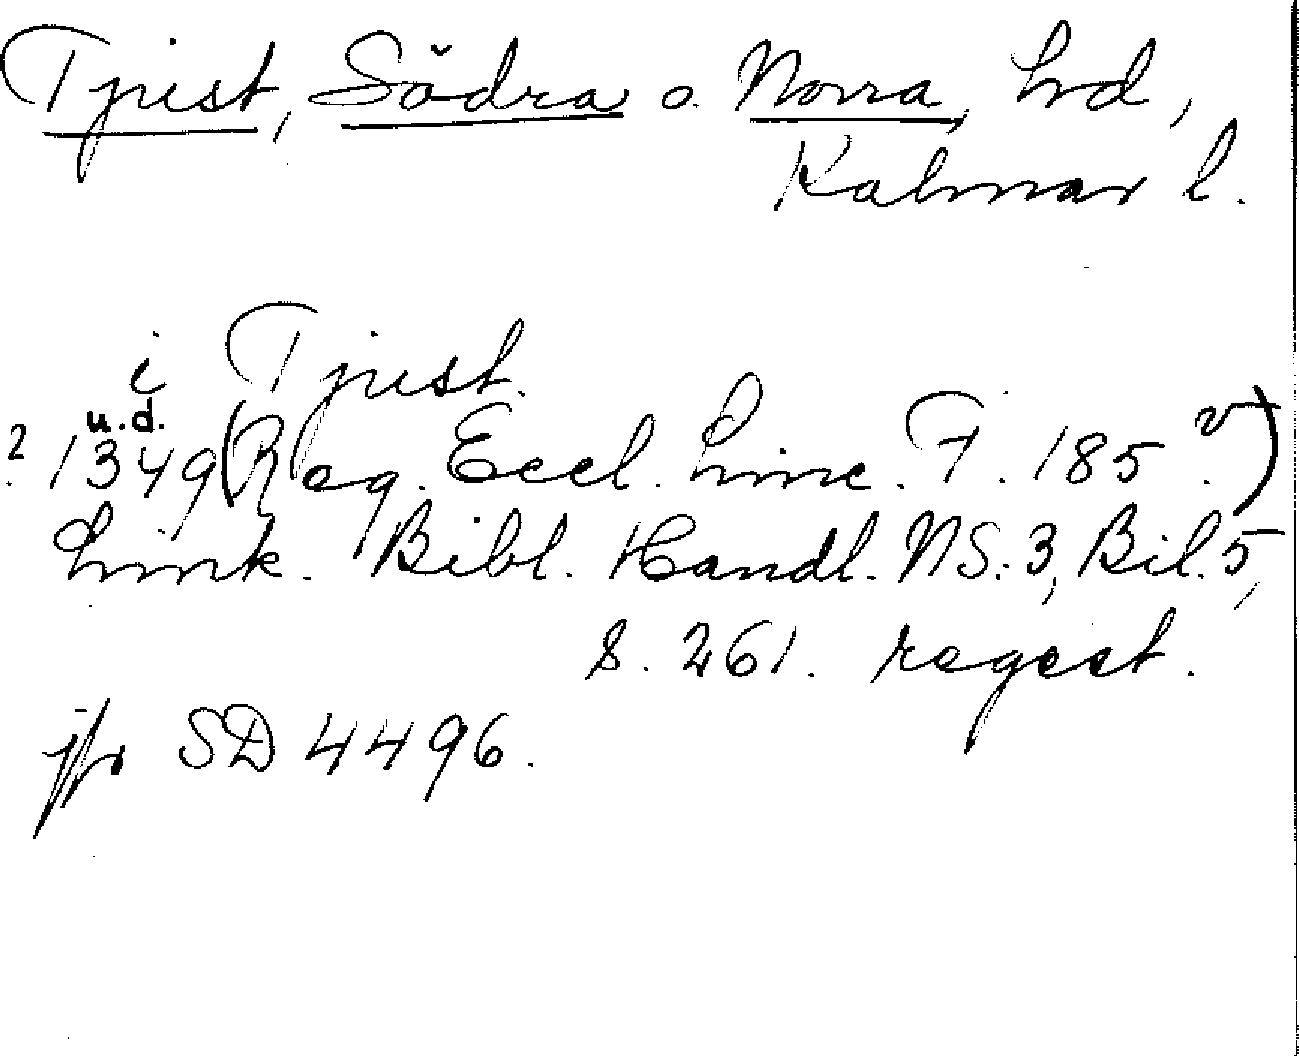 Tjust, Södra o. Norra, hd,
Kalmar l.
i Tjust.
u.d.
? 1349 (Reg. Eccl. Linc. F. 185 v.)
Link. Bibl. Handl. NS:3, Bil. 5,
s. 261. regest.
jfr SD 4496.